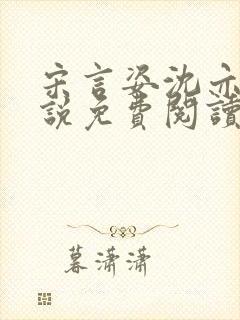 宋言姿沈亦
說免費閱讀
暮潇潇